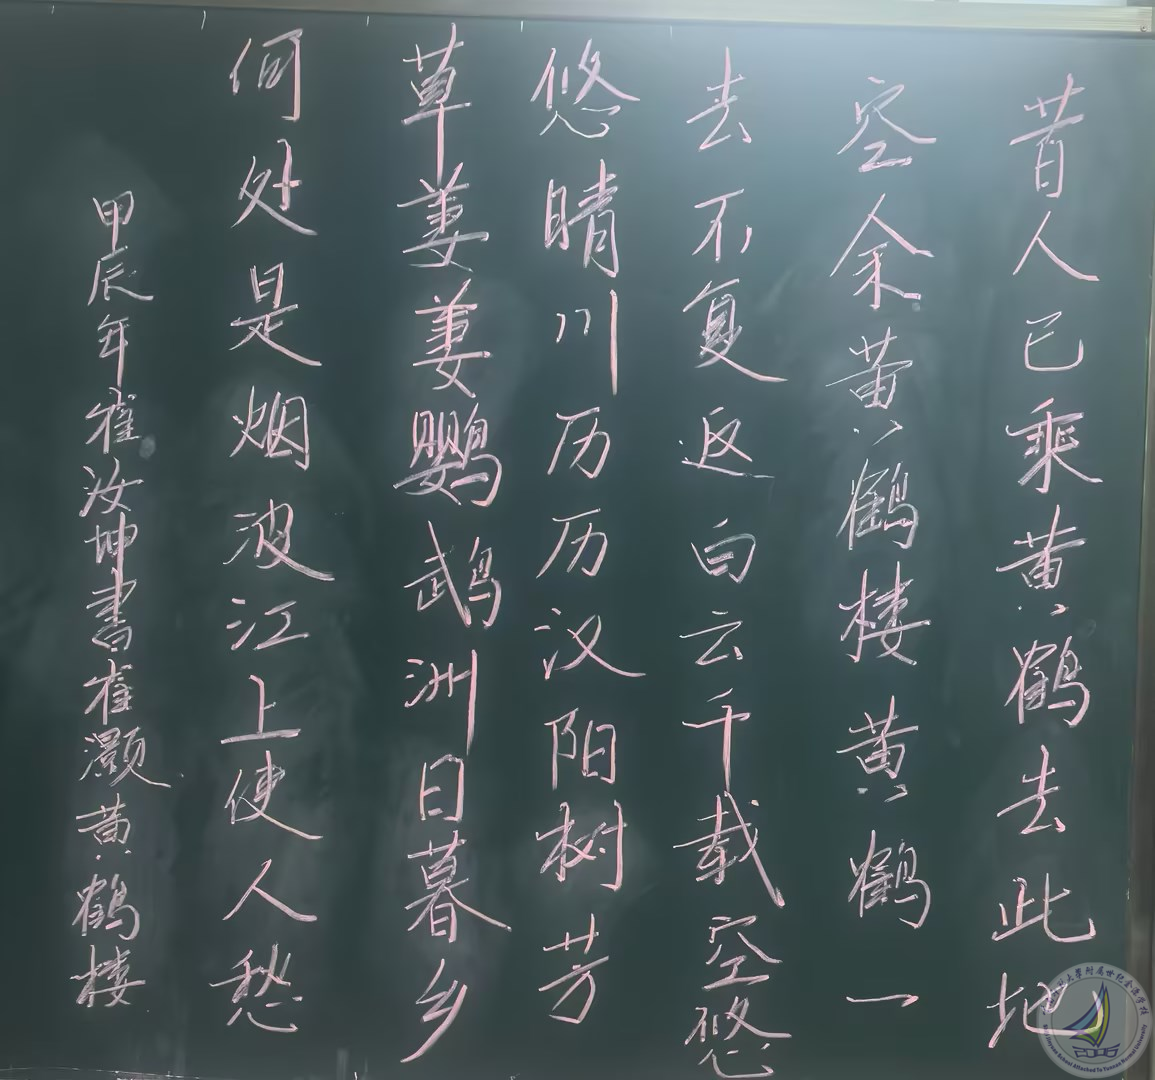 昔人已乘黄鹤去此地
空余黄鹤楼黄鹤一
去不复返白云千载空悠
悠晴川历历汉阳树芳
草萋萋鹦鹉洲日暮乡
何处是烟波江上使人愁
甲辰年崔汝坤書崔灏黄鹤楼
School Attached To Yunnan Normal University